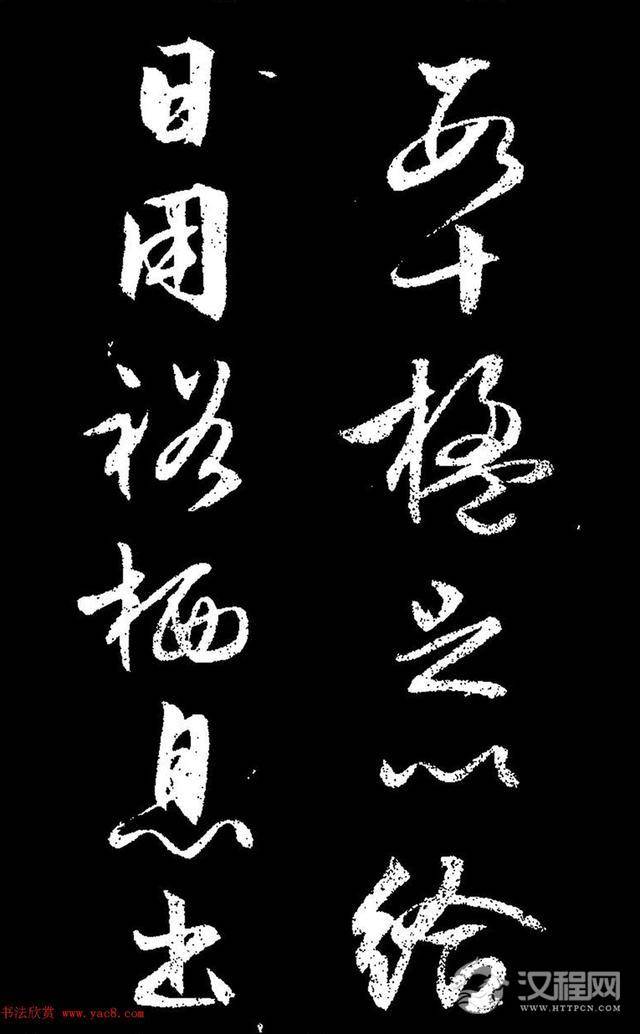 數十楹足以給
日用裕栖息出
书法欣赏 www.yac8.com
汉程网
WWW.HTTPCN.COM